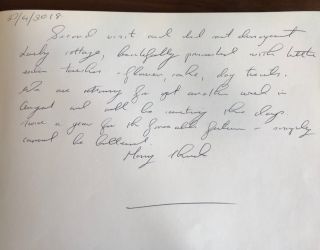 2/4/2018
Second visit and did not disappoint
Lovely cottage, beautifully presented with little
extra touches - flowers, cake, dog treats.
We are returning for yet another week in
August and will be
twice a year for the foreseeable future - simply
cannot be bettered.
Many thanks